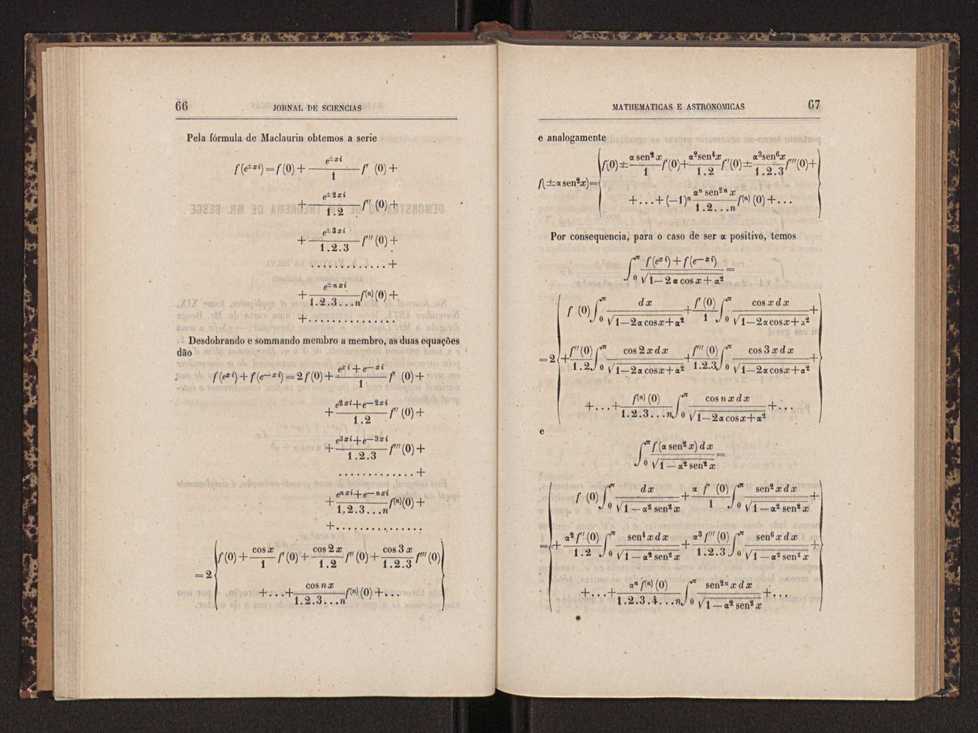 66 JORNAL DE SCIENCIAS
Pela fórmula de Maclaurin obtemos a serie
f(e^{±xi})=f(0)+ e^{±xi}/1 f' (0)+
+ e^{±2xi}/1.2 f'' (0)+
+ e^{±3xi}/1.2.3 f''' (0)+
.............+
+ e^{±nxi}/1.2.3...n f^{(n)}(0)+
+...............
Desdobrando e sommando membro a membro, as duas equações
dão
f(e^{xi})+f(e^{—xi})=2f(0)+ e^{xi}+e^{—xi}/1 f' (0)+
+ e^{2xi}+e^{—2xi}/1.2 f'' (0)+
+ e^{3xi}+e^{—3xi}/1.2.3 f'''(0)+
.............+
+ e^{nxi}+e^{—nxi}/1.2.3...n f^{(n)}(0)+
+...............
=2{f(0)+ cos x/1 f'(0)+ cos 2x/1.2 f''(0)+ cos 3x/1.2.3 f'''(0)
+...+ cos nx/1.2.3...n f^{(n)}(0)+...}
MATHEMATICAS E ASTRONOMICAS 67
e analogamente
f(±α sen²x)={f(0)± α sen²x/1 f'(0)+ α²sen⁴x/1.2 f''(0)± α³sen⁶x/1.2.3 f'''(0)+
+...+(—1)ⁿ αⁿ sen²ⁿx/1.2...n f^{(n)}(0)+...}
Por consequencia, para o caso de ser α positivo, temos
∫₀^π f(e^{xi})+f(e^{—xi})/√1—2α cos x+α² =
=2{f (0)∫₀^π dx/√1—2α cos x+α² + f'(0)/1 ∫₀^π cos x dx/√1—2α cos x+α²
+ f''(0)/1.2 ∫₀^π cos 2x dx/√1—2α cos x+α² + f'''(0)/1.2.3 ∫₀^π cos 3x dx/√1—2α cos x+α² +
+...+ f^{(n)}(0)/1.2.3...n ∫₀^π cos n x dx/√1—2α cos x+α² +...}
e
∫₀^π f(α sen² x) dx/√1—α² sen² x =
={f (0)∫₀^π dx/√1—α² sen² x + α f' (0)/1 ∫₀^π sen² x dx/√1—α² sen² x +
+ α² f''(0)/1.2 ∫₀^π sen⁴ x dx/√1—α² sen² x + α³ f'''(0)/1.2.3 ∫₀^π sen⁶ x dx/√1—α² sen² x +
+...+ αⁿ f^{(n)}(0)/1.2.3.4...n ∫₀^π sen²ⁿ x dx/√1—α² sen² x +...}